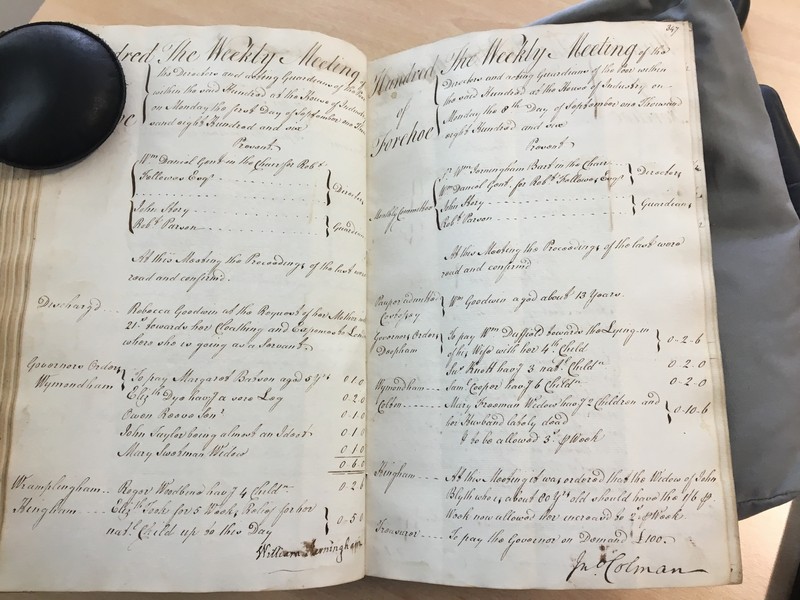 dred The Weekly Meeting of
the Directors and acting Guardians of the Poor
within the said Hundred at the House of Industry
on Monday the first Day of September one Thou
sand eight Hundred and six
Present
Wm Daniel Gent in the Chair for Robt
Fellowes Esqr
Director
John Story
Robt Parson
Guardian
At this Meeting the Proceedings of the last were
read and confirmed.
Discharg'd Rebecca Goodwin at the Request of her Mother
21s towards her Cloathing and Expences to
where she is going as a Servant
Governors Orders
Wymondham To pay Margaret Batson aged 5 Yrs 0 1 0
Elizth Dye havg a sore Leg 0 2 0
Owen Reeve Senr 0 1 0
John Taylor being almost an Ideot 0 1 0
Mary Swetman Widow 0 1 0
0 6 0
Wramplingham Roger Woodbine havg 4 Childn 0 2 6
Hingham Elizth for 5 Weeks Relief for her
natl Child up to this Day 0 5 0
William Jerningham
347
Hundred of Forehoe
The Weekly Meeting of the
Directors and acting Guardians of the Poor within
the said Hundred at the House of Industry on
Monday the 8th Day of September one Thousand
eight Hundred and six
Present
Monthly Committee
Sr Wm Jerningham Bart in the Chair
Wm Daniel Gent for Robt Fellowes Esqr
Directors
John Story
Robt Parson
Guardians
At this Meeting the Proceedings of the last were
read and confirmed
Pauper admitted
Costessy Wm Goodwin aged about 13 Years.
Governors Orders
Deopham To pay Wm Duffield towards the Lying-in
of his Wife with her 4th Child 0-2-6
Jas Knott havg 3 natl Childn 0-2-0
Wymondham Saml Cooper havg 6 Childn 0-2-0
Colton Mary Freeman Widow havg 2 Children and
her Husband lately dead 0-10-6
to be allowed 3s ⅌ Week
Hingham At this Meeting it was ordered that the Widow of John
Blyth who is about 80 Yrs old should have the 1/6 ⅌
Week now allowed her increased to 2s ⅌ Week
Treasurer To pay the Governor on Demand £100.
Jno Colman